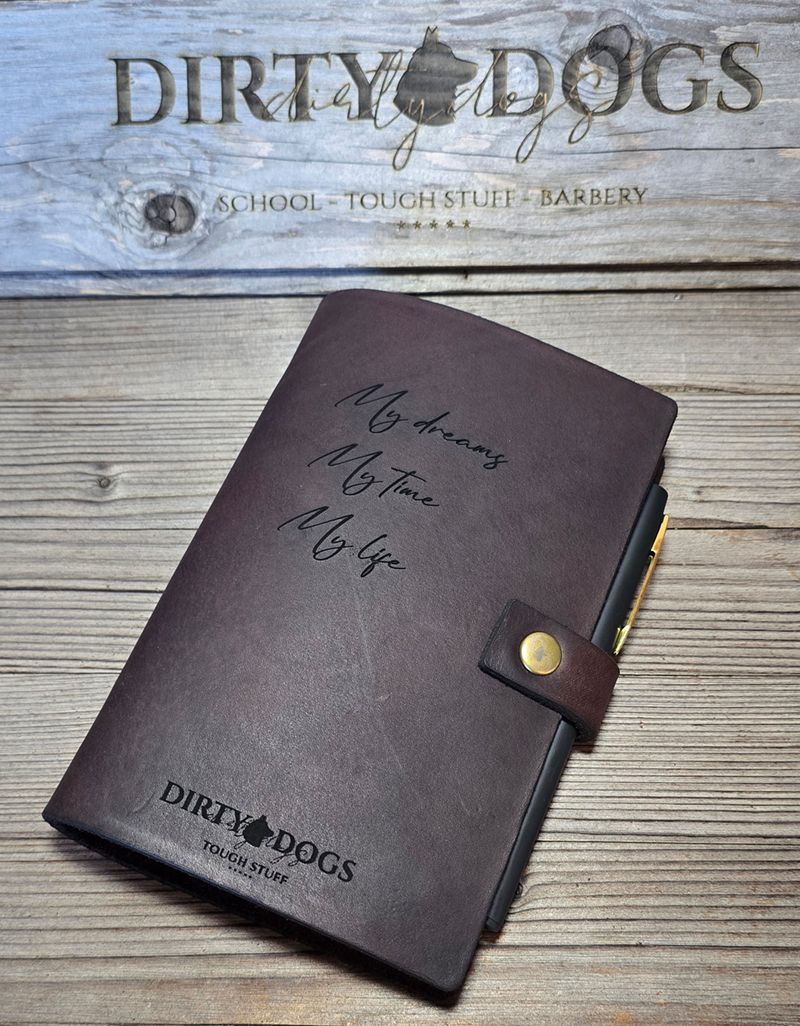 DIRTY DOGS
dirty dogs
SCHOOL - TOUGH STUFF - BARBERY
My dreams
My time
My life
DIRTY DOGS
dirty dogs
TOUGH STUFF